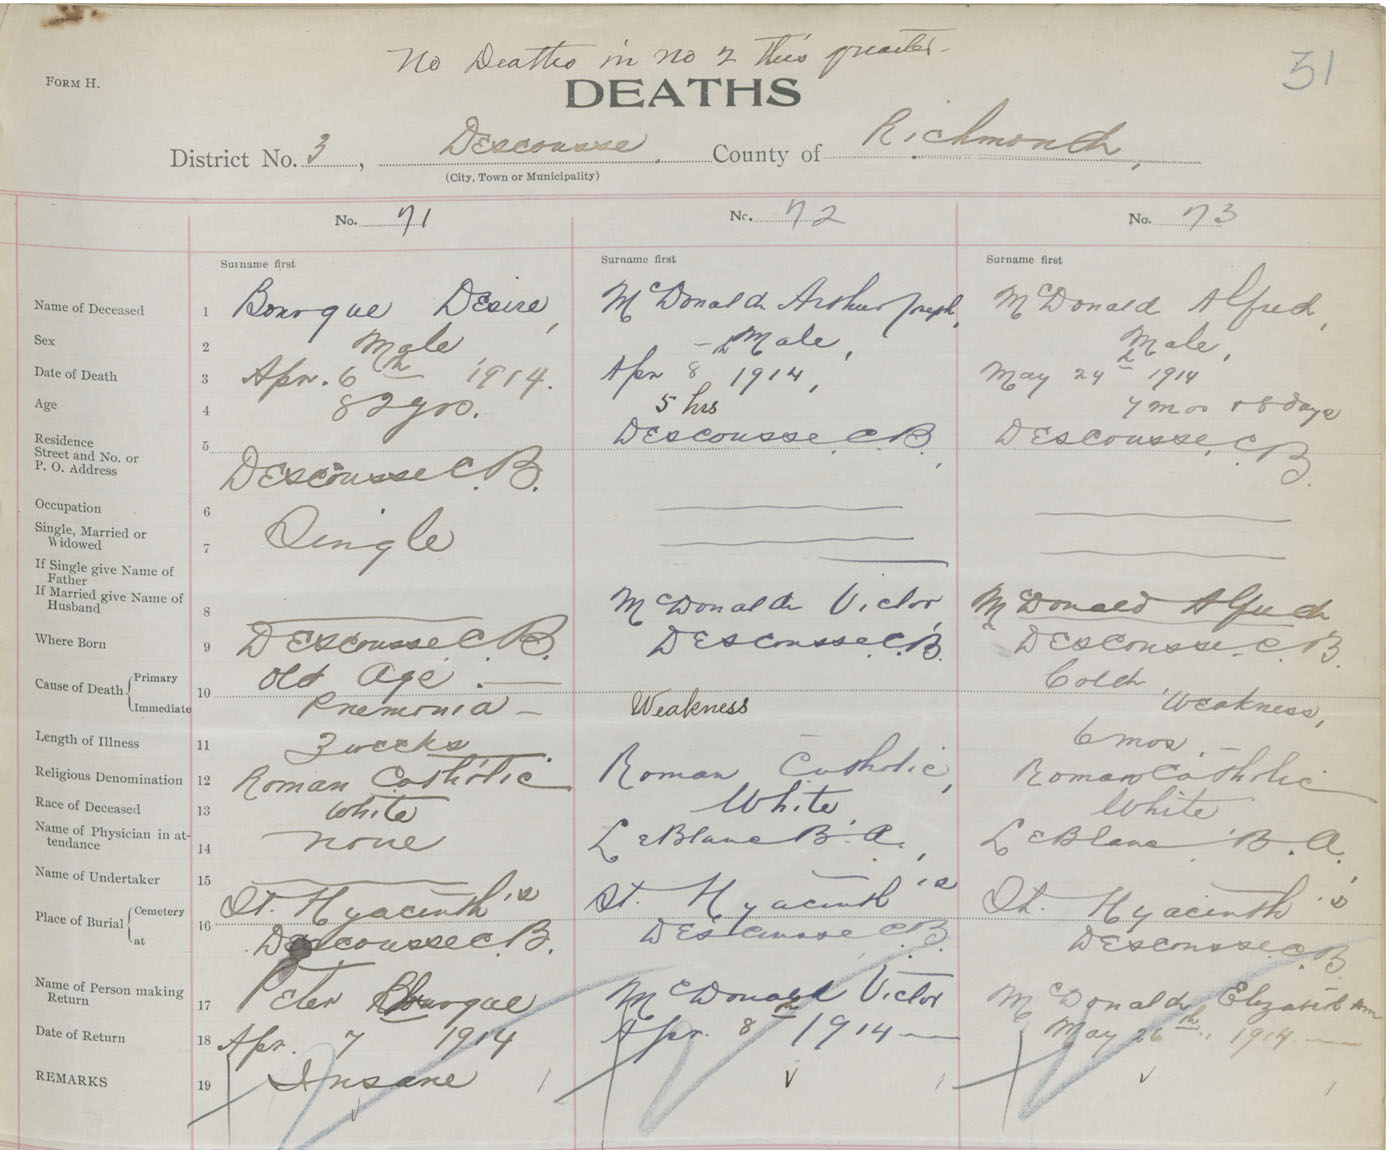 No Deaths in no 2 this quarter
31
FORM H.
DEATHS
District No. 3, Descousse, County of Richmond,
(City, Town or Municipality)
No. 71 No. 72 No. 73
Surname first Surname first Surname first
Name of Deceased 1 Bourque Desire, McDonald Arthur Joseph, McDonald Alfred,
Sex 2 Male Male, Male,
Date of Death 3 Apr. 6th 1914. Apr 8th 1914, May 24th 1914
Age 4 82 yrs. 5 hrs 7 mos & 8 days
Residence
Street and No. or
P. O. Address 5 Descousse C.B. Descousse C.B. Descousse, C.B.
Occupation 6
Single, Married or
Widowed 7 Single
If Single give Name of
Father
If Married give Name of
Husband 8 McDonald Victor McDonald Alfred
Where Born 9 Descousse C.B. Descousse C.B. Descousse C.B.
Cause of Death Primary 10 Old Age. Cold
Immediate Pnemonia Weakness Weakness,
Length of Illness 11 3 weeks 6 mos.
Religious Denomination 12 Roman Catholic Roman Catholic, Roman Catholic
Race of Deceased 13 White White White
Name of Physician in at-
tendance 14 none LeBlanc B. A., LeBlanc B. A.
Name of Undertaker 15
Place of Burial Cemetery 16 St. Hyacinth's St. Hyacinth's St. Hyacinth's
at Descousse C.B. Descousse C.B. Descousse C.B.
Name of Person making
Return 17 Peter Bourque McDonald Victor McDonald Elizabeth Ann
Date of Return 18 Apr. 7 1914 Apr. 8th 1914 May 26th, 1914.
REMARKS 19 Insane